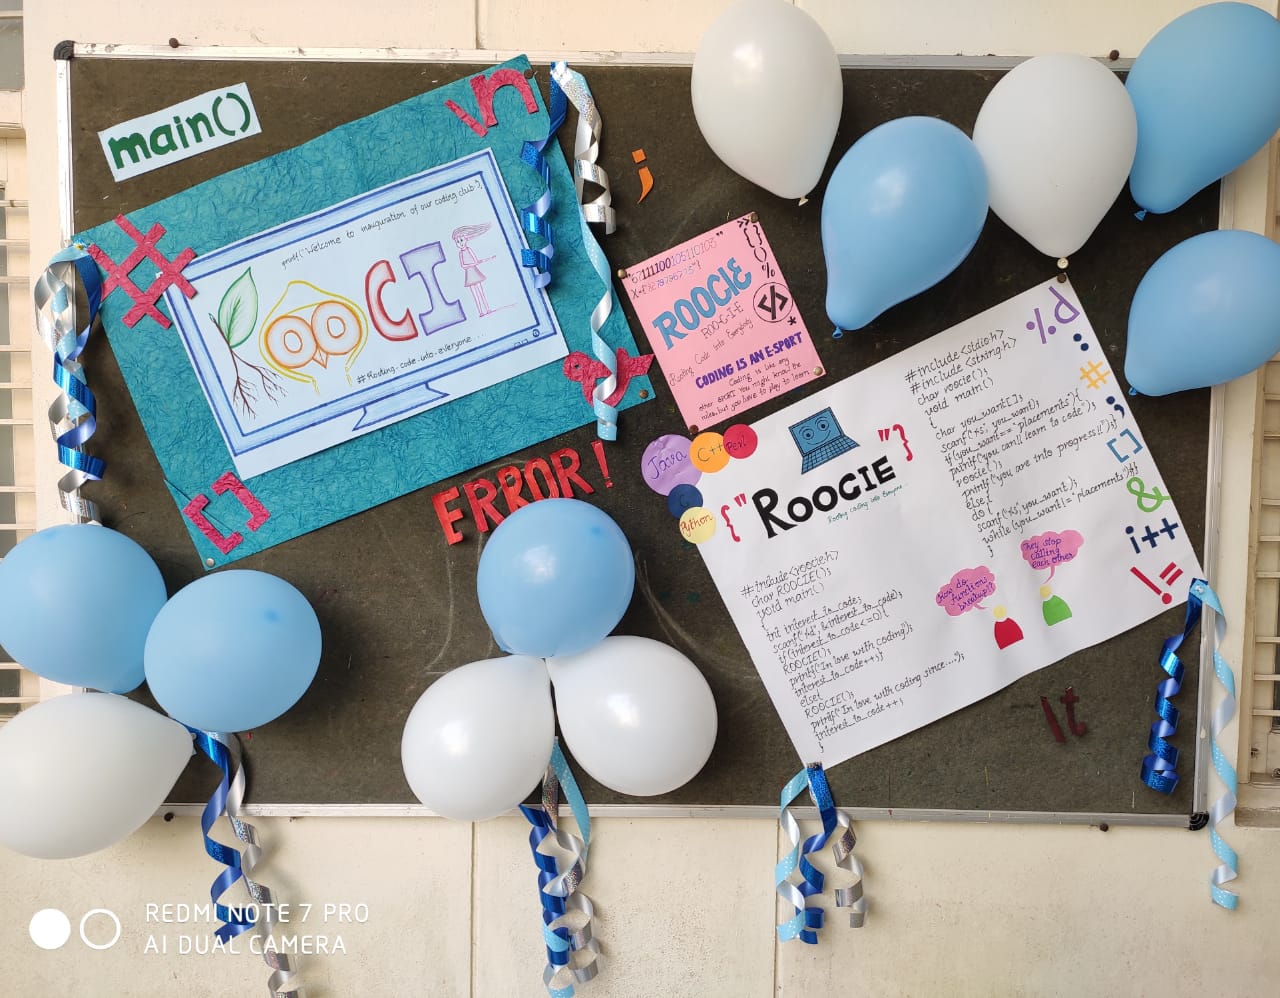 main()
\n
#
printf("Welcome to inauguration of our coding club");
OOCI
## Rooting-code-into-everyone...
[]
;
ERROR!
"67111100105110103"
ROOCIE
ROO-C-I-E
Rooting Code into Everybody
CODING IS AN E-SPORT
Coding is like any
other SPORT. You might know the
rules, but you have to play to learn
{}
()
%
</>
*
Java
C++
Perl
C
Python
{"ROOCIE"}
Rooting coding into Everyone
#include<stdio.h>
#include<string.h>
char roocie();
void main()
{
char you_want[];
scanf("%s", you_want);
if(you_want=="placements"){
printf("you can!! learn to code");
roocie();
printf("you are into progress!!");}
else{
do {
scanf("%s", you_want);
while (you_want!="placements");}}
}
#include<roocie.h>
char ROOCIE();
void main()
{
int interest_to_code;
scanf("%d", &interest_to_code);
if(interest_to_code<=0){
ROOCIE();
printf("In love with coding");
interest_to_code++;}
else{
ROOCIE();
printf("In love with coding since....");
interest_to_code++;
}
How do
functions
breakup!!?
They stop
calling
each other
%d
:
#
;
[]
&
i++
!=
\t
REDMI NOTE 7 PRO
AI DUAL CAMERA